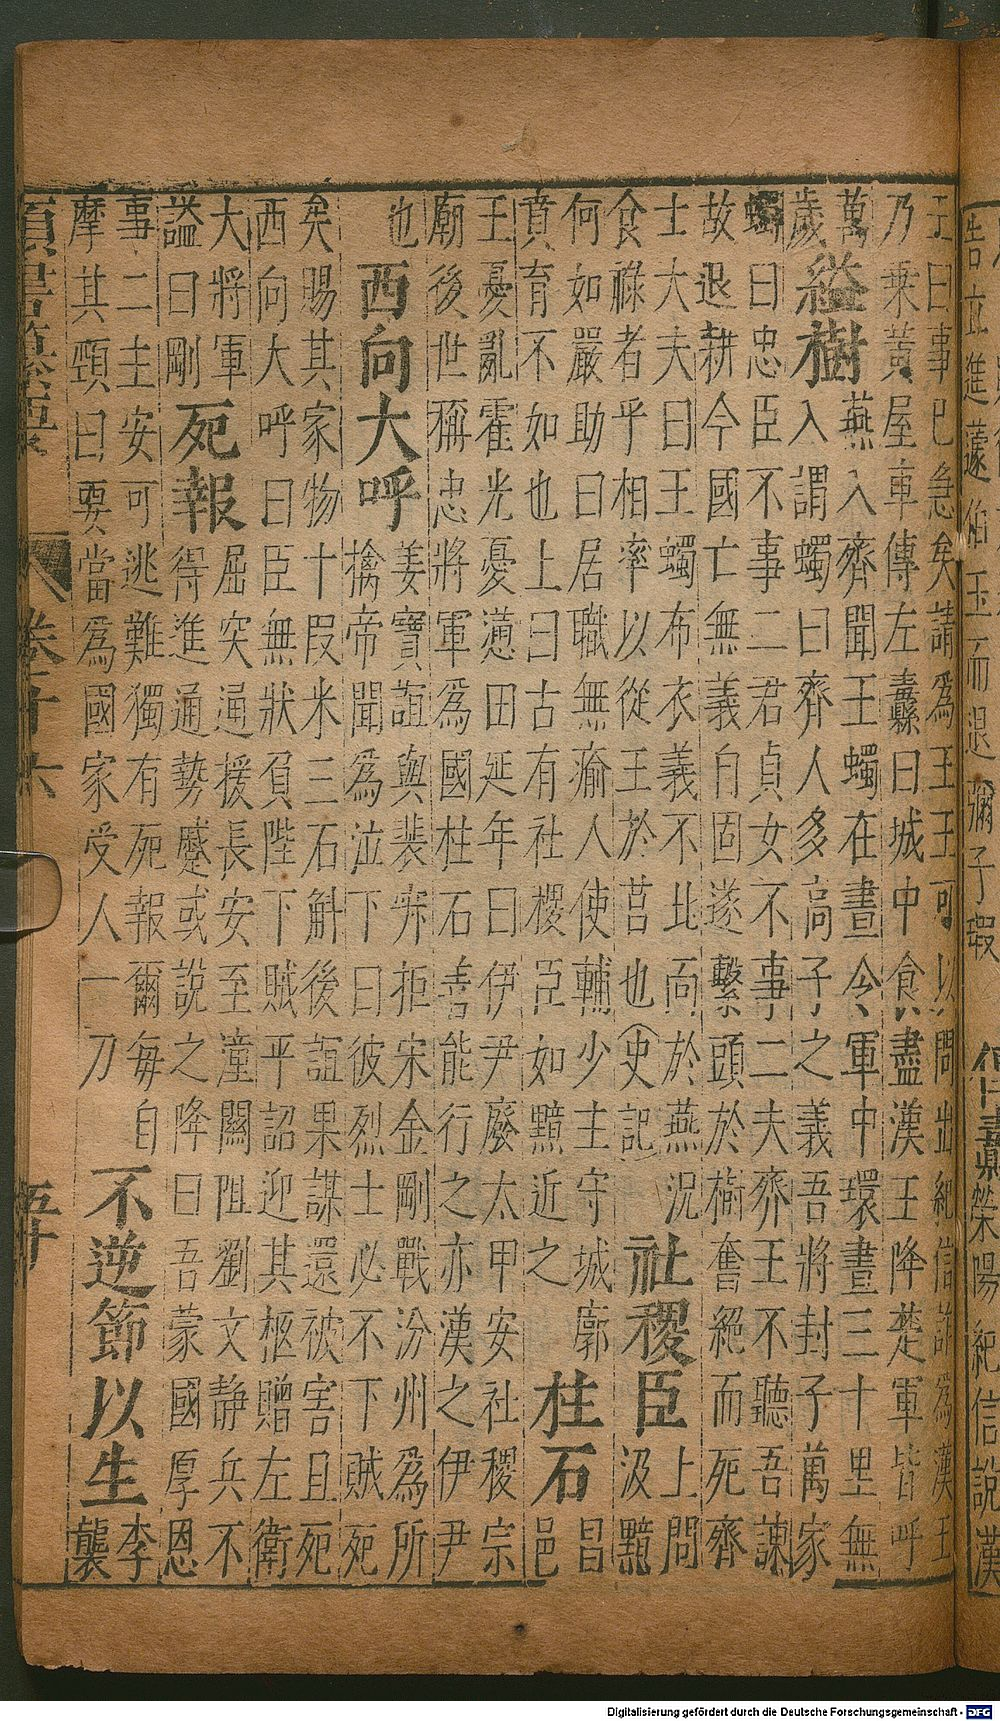 告立進蘧伯玉而退彌子瑕
滎陽紀信說漢
王曰事已急矣請爲王王可以間出紀信詐爲漢王
乃乗黃屋車傳左纛曰城中食盡漢王降楚軍皆呼
萬
歲
縊樹
燕入齊聞王蠋在晝令軍中環晝三十里無
入謂蠋曰齊人多高子之義吾將封子萬家
蠋曰忠臣不事二君貞女不事二夫齊王不聽吾諫
故退耕今國亡無義自固遂繫頭於樹奮絕而死齊
士大夫曰王蠋布衣義不北面於燕況
食祿者乎相率以從王於莒也(史記
社稷臣
上問
汲黯
何如嚴助曰居職無瘉人使輔少主守城廓
賁育不如也上曰古有社稷臣如黯近之
柱石
昌
邑
王憂亂霍光憂懣田延年曰伊尹廢太甲安社稷宗
廟後世稱忠將軍爲國柱石善能行之亦漢之伊尹
也
西向大呼
姜寶誼與裴寂拒宋金剛戰汾州爲所
擒帝聞爲泣下曰彼烈士必不下賊死
矣賜其家物十叚米三石斛後誼果謀還被害且死
西向大呼曰臣無狀負陛下賊平詔迎其柩贈左衛
大將軍
謚曰剛
死報
屈突通援長安至潼關阻劉文靜兵不
得進通勢蹙或說之降曰吾蒙國厚恩
事二主安可逃難獨有死報爾每自
摩其頸曰要當爲國家受人一刀
不逆節以生
李
襲
類書纂要 卷之十六 五十
Digitalisierung gefördert durch die Deutsche Forschungsgemeinschaft - DFG